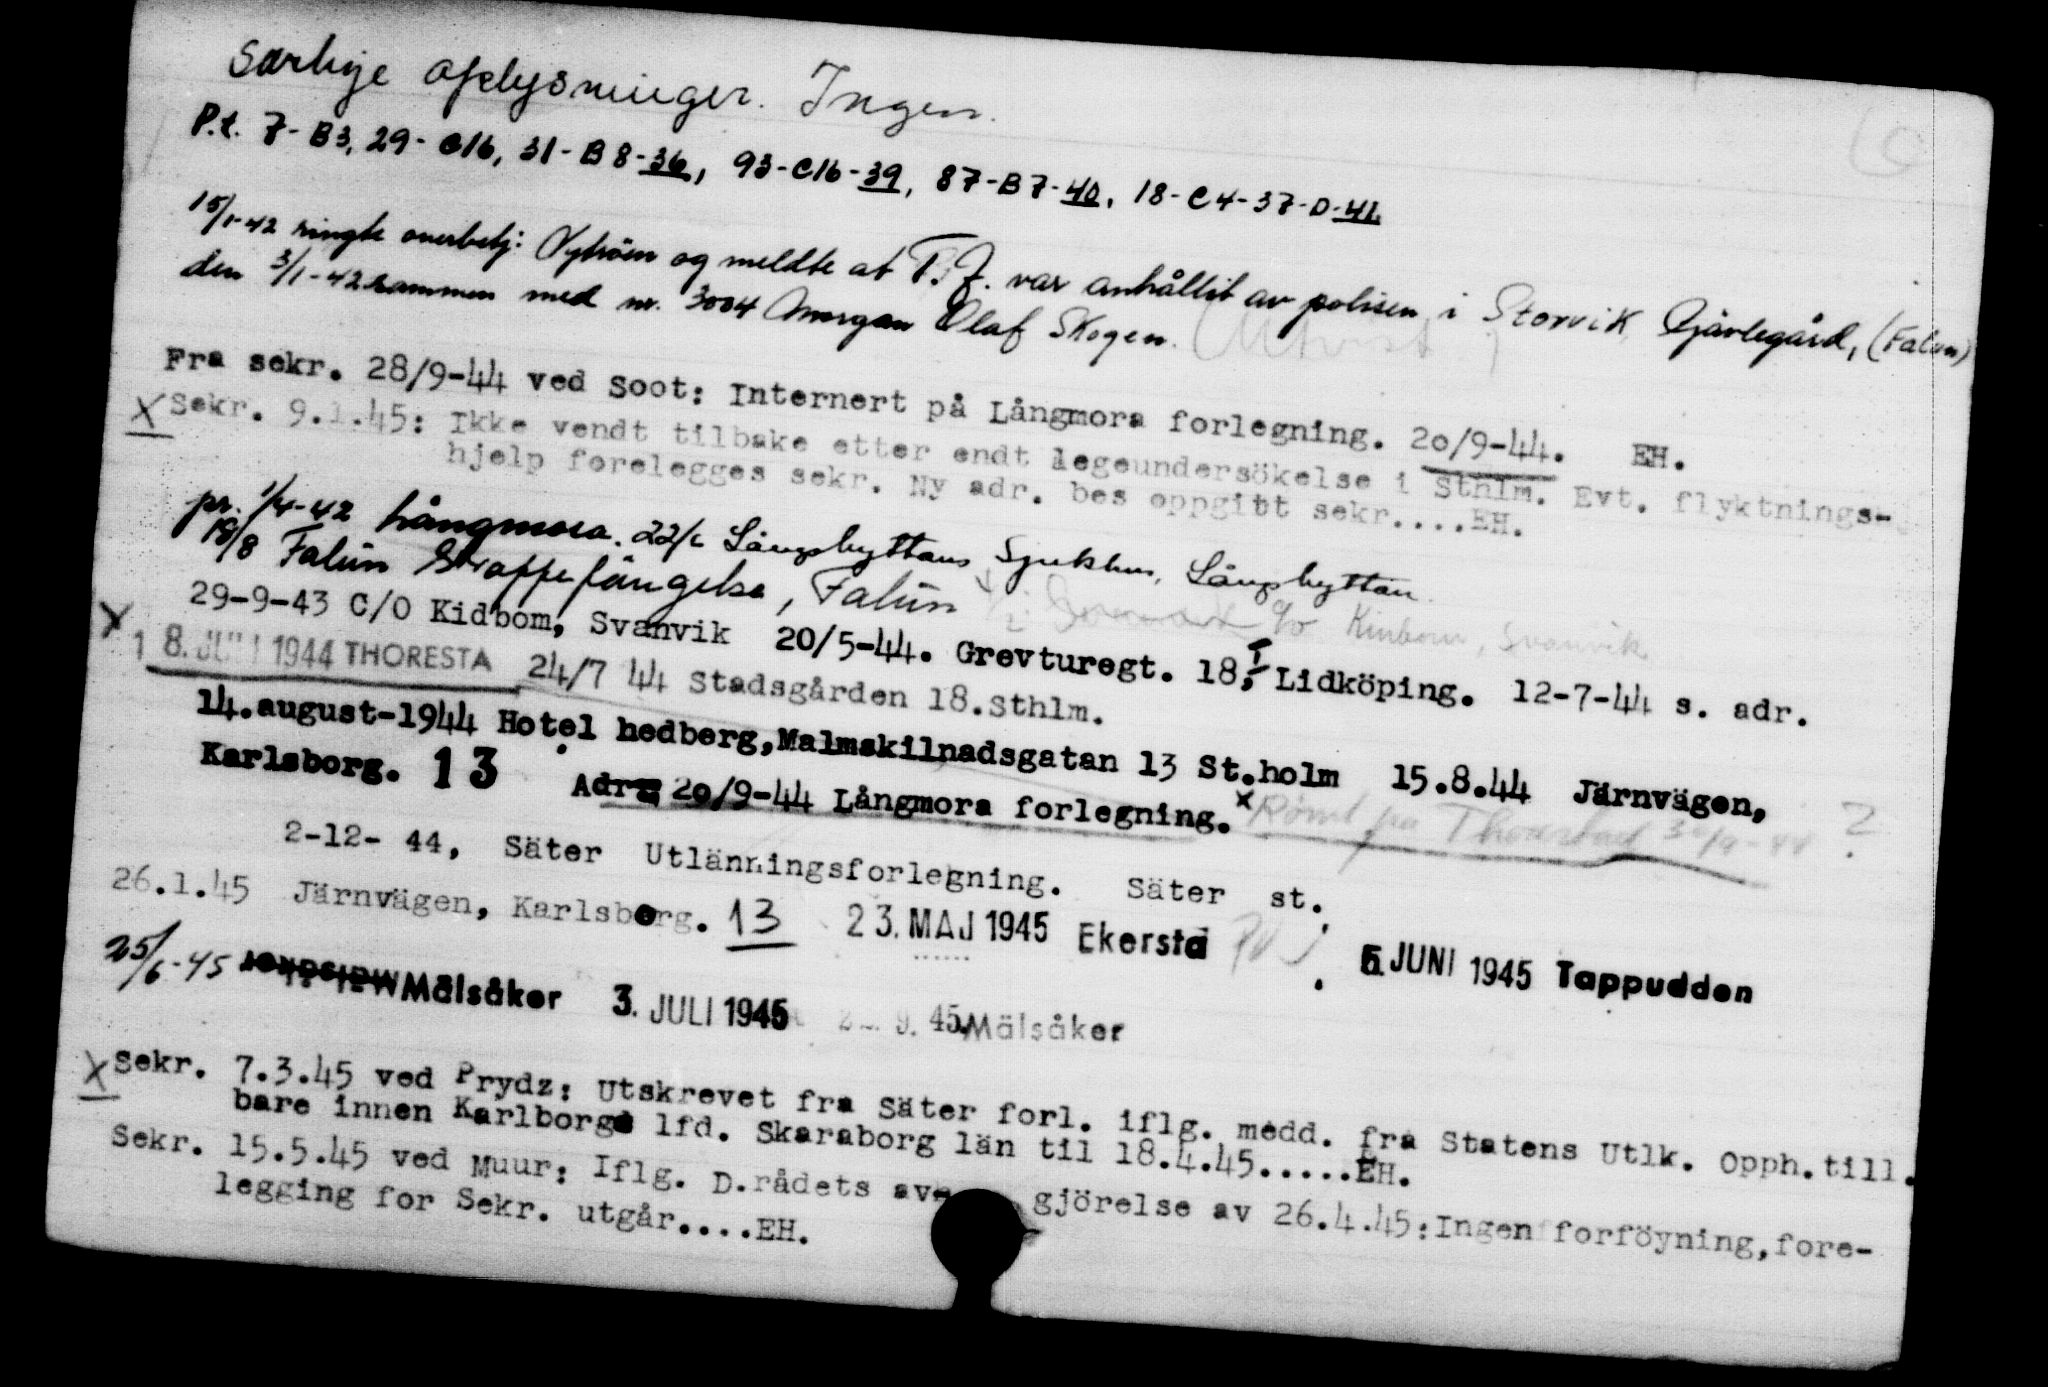 Særlige oplysninger. Ingen.
P.t. 7-B3, 29-C16, 31-B8-36, 93-C16-39, 87-B7-40, 18-C4-37-D-41
15/1-42 ringte overbetj: Nyström og meldte at T.J. var anhållit av polisen i Storvik, Gjävlegård, (Falun)
den 3/1-42 sammen med nr. 3004 Amorgan Olaf Skogen.
Fra sekr. 28/9-44 ved Soot: Internert på Långmora forlegning. 20/9-44. EH.
X Sekr. 9.1.45: Ikke vendt tilbake etter endt legeundersökelse i Sthlm. Evt. flyktnings-
hjelp forelegges sekr. Ny adr. bes oppgitt sekr....EH.
pr. 1/4-42 Långmora. 22/6 Långshyttans Sjukhus, Långshyttan.
19/8 Falun Straffefängelse, Falun c/o Kinbom, Svanvik
29-9-43 C/O Kidbom, Svanvik 20/5-44. Grevturegt. 18, I Lidköping. 12-7-44 s. adr.
X 1 8. JULI 1944 THORESTA 24/7 44 Stadsgården 18.Sthlm.
14.august-1944 Hotel hedberg,Malmskilnadsgatan 13 St.holm 15.8.44 Järnvägen,
Karlsborg. 13 Adr. 20/9-44 Långmora forlegning. x Römt fra Thorestad 30/9-44 ?
2-12- 44, Säter Utlänningsforlegning. Säter st.
26.1.45 Järnvägen, Karlsborg. 13 23. MAJ 1945 Ekerstad 5. JUNI 1945 Tappudden
25/6-45 Mälsåker 3. JULI 1945 9. 45. Mälsåker
X Sekr. 7.3.45 ved Prydz: Utskrevet fra Säter forl. iflg. medd. fra Statens Utlk. Opph.till.
bare innen Karlborgs lfd. Skaraborg län til 18.4.45.....EH.
Sekr. 15.5.45 ved Muur: Iflg. D.rådets av- gjörelse av 26.4.45:Ingen forföyning,fore-
legging for Sekr. utgår....EH.